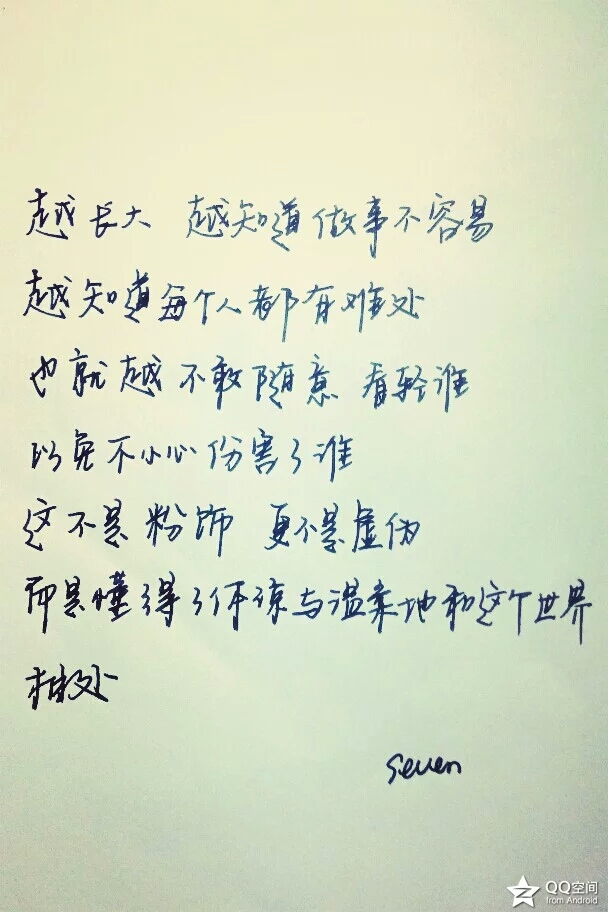 越长大 越知道做事不容易
越知道每个人都有难处
也就越不敢随意 看轻谁
以免不小心伤害了谁
这不是粉饰 更不是虚伪
而是懂得了体谅与温柔地和这个世界
相处
seven
QQ空间
from Android